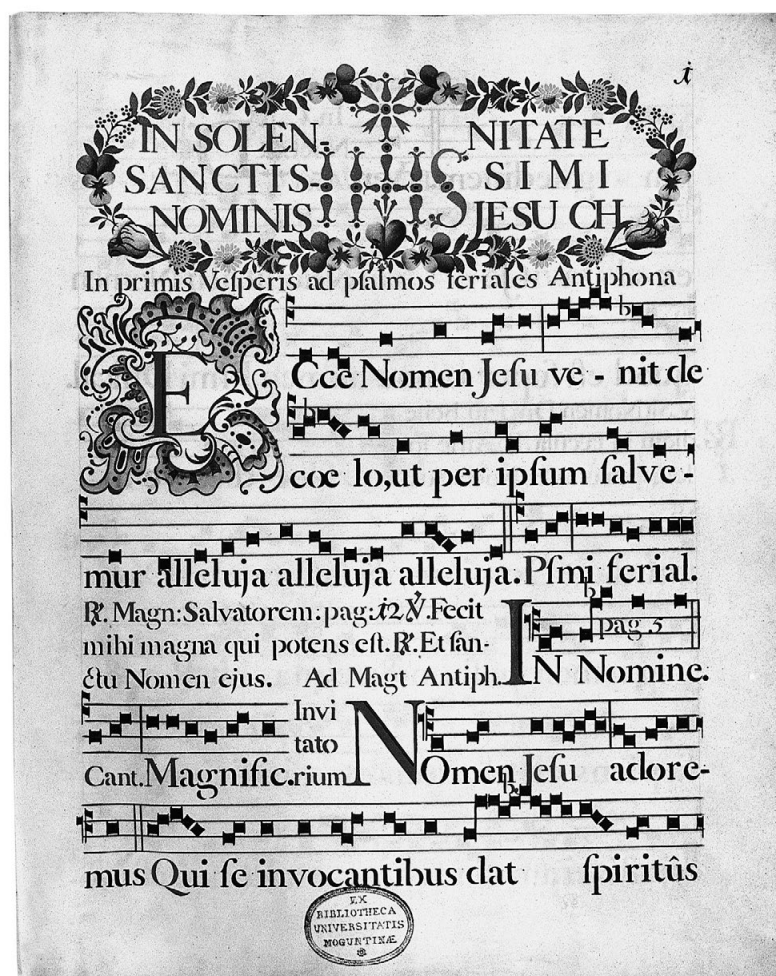 i
IN SOLEN- NITATE
SANCTIS- IHS SIMI
NOMINIS JESU CH
In primis Veſperis ad pſalmos feriales Antiphona
ECce Nomen Jeſu ve - nit de
coe lo, ut per ipſum ſalve -
mur alleluja alleluja alleluja. Pſmi ferial.
℟. Magn: Salvatorem. pag: 12 ℣. Fecit
mihi magna qui potens eſt. ℟. Et ſan-
ctũ Nomen ejus. Ad Magt Antiph. IN Nomine.
pag 5
Cant. Magnific. Invitatorium NOmen Jeſu adore-
mus Qui ſe invocantibus dat ſpiritûs
EX
BIBLIOTHECA
UNIVERSITATIS
MOGUNTINÆ